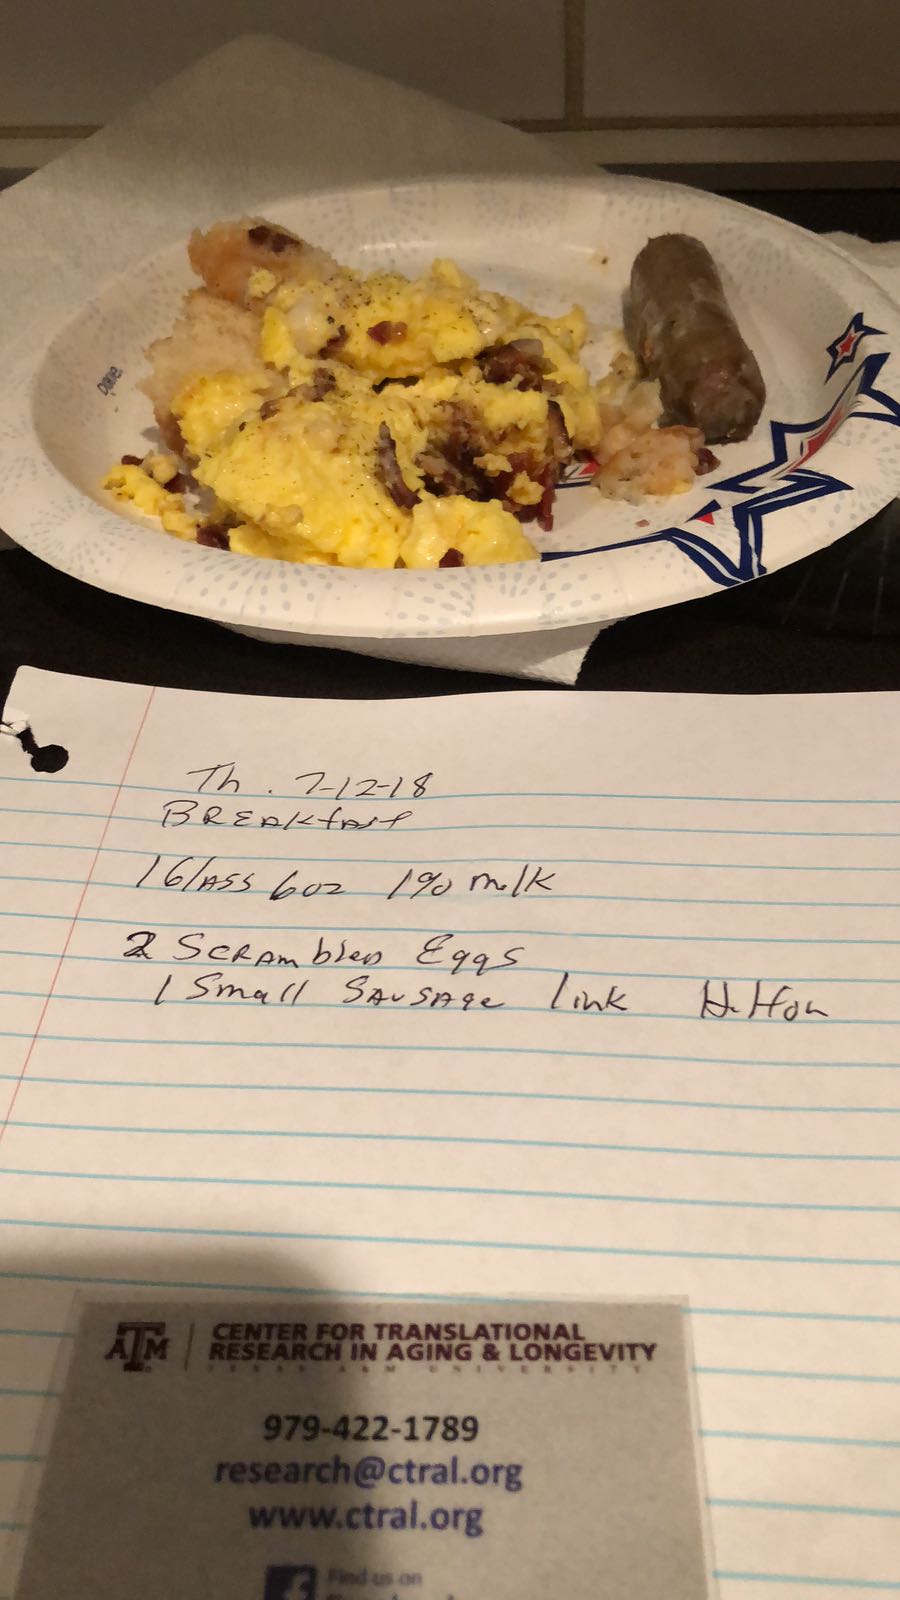 Dixie
Th. 7-12-18
BREAKfAST
1 GlASS 6oz 1% milk
2 SCRAmbled Eggs
1 Small SAUSAge link Hilton
ATM CENTER FOR TRANSLATIONAL
RESEARCH IN AGING & LONGEVITY
TEXAS A&M UNIVERSITY
979-422-1789
research@ctral.org
www.ctral.org
f Find us on